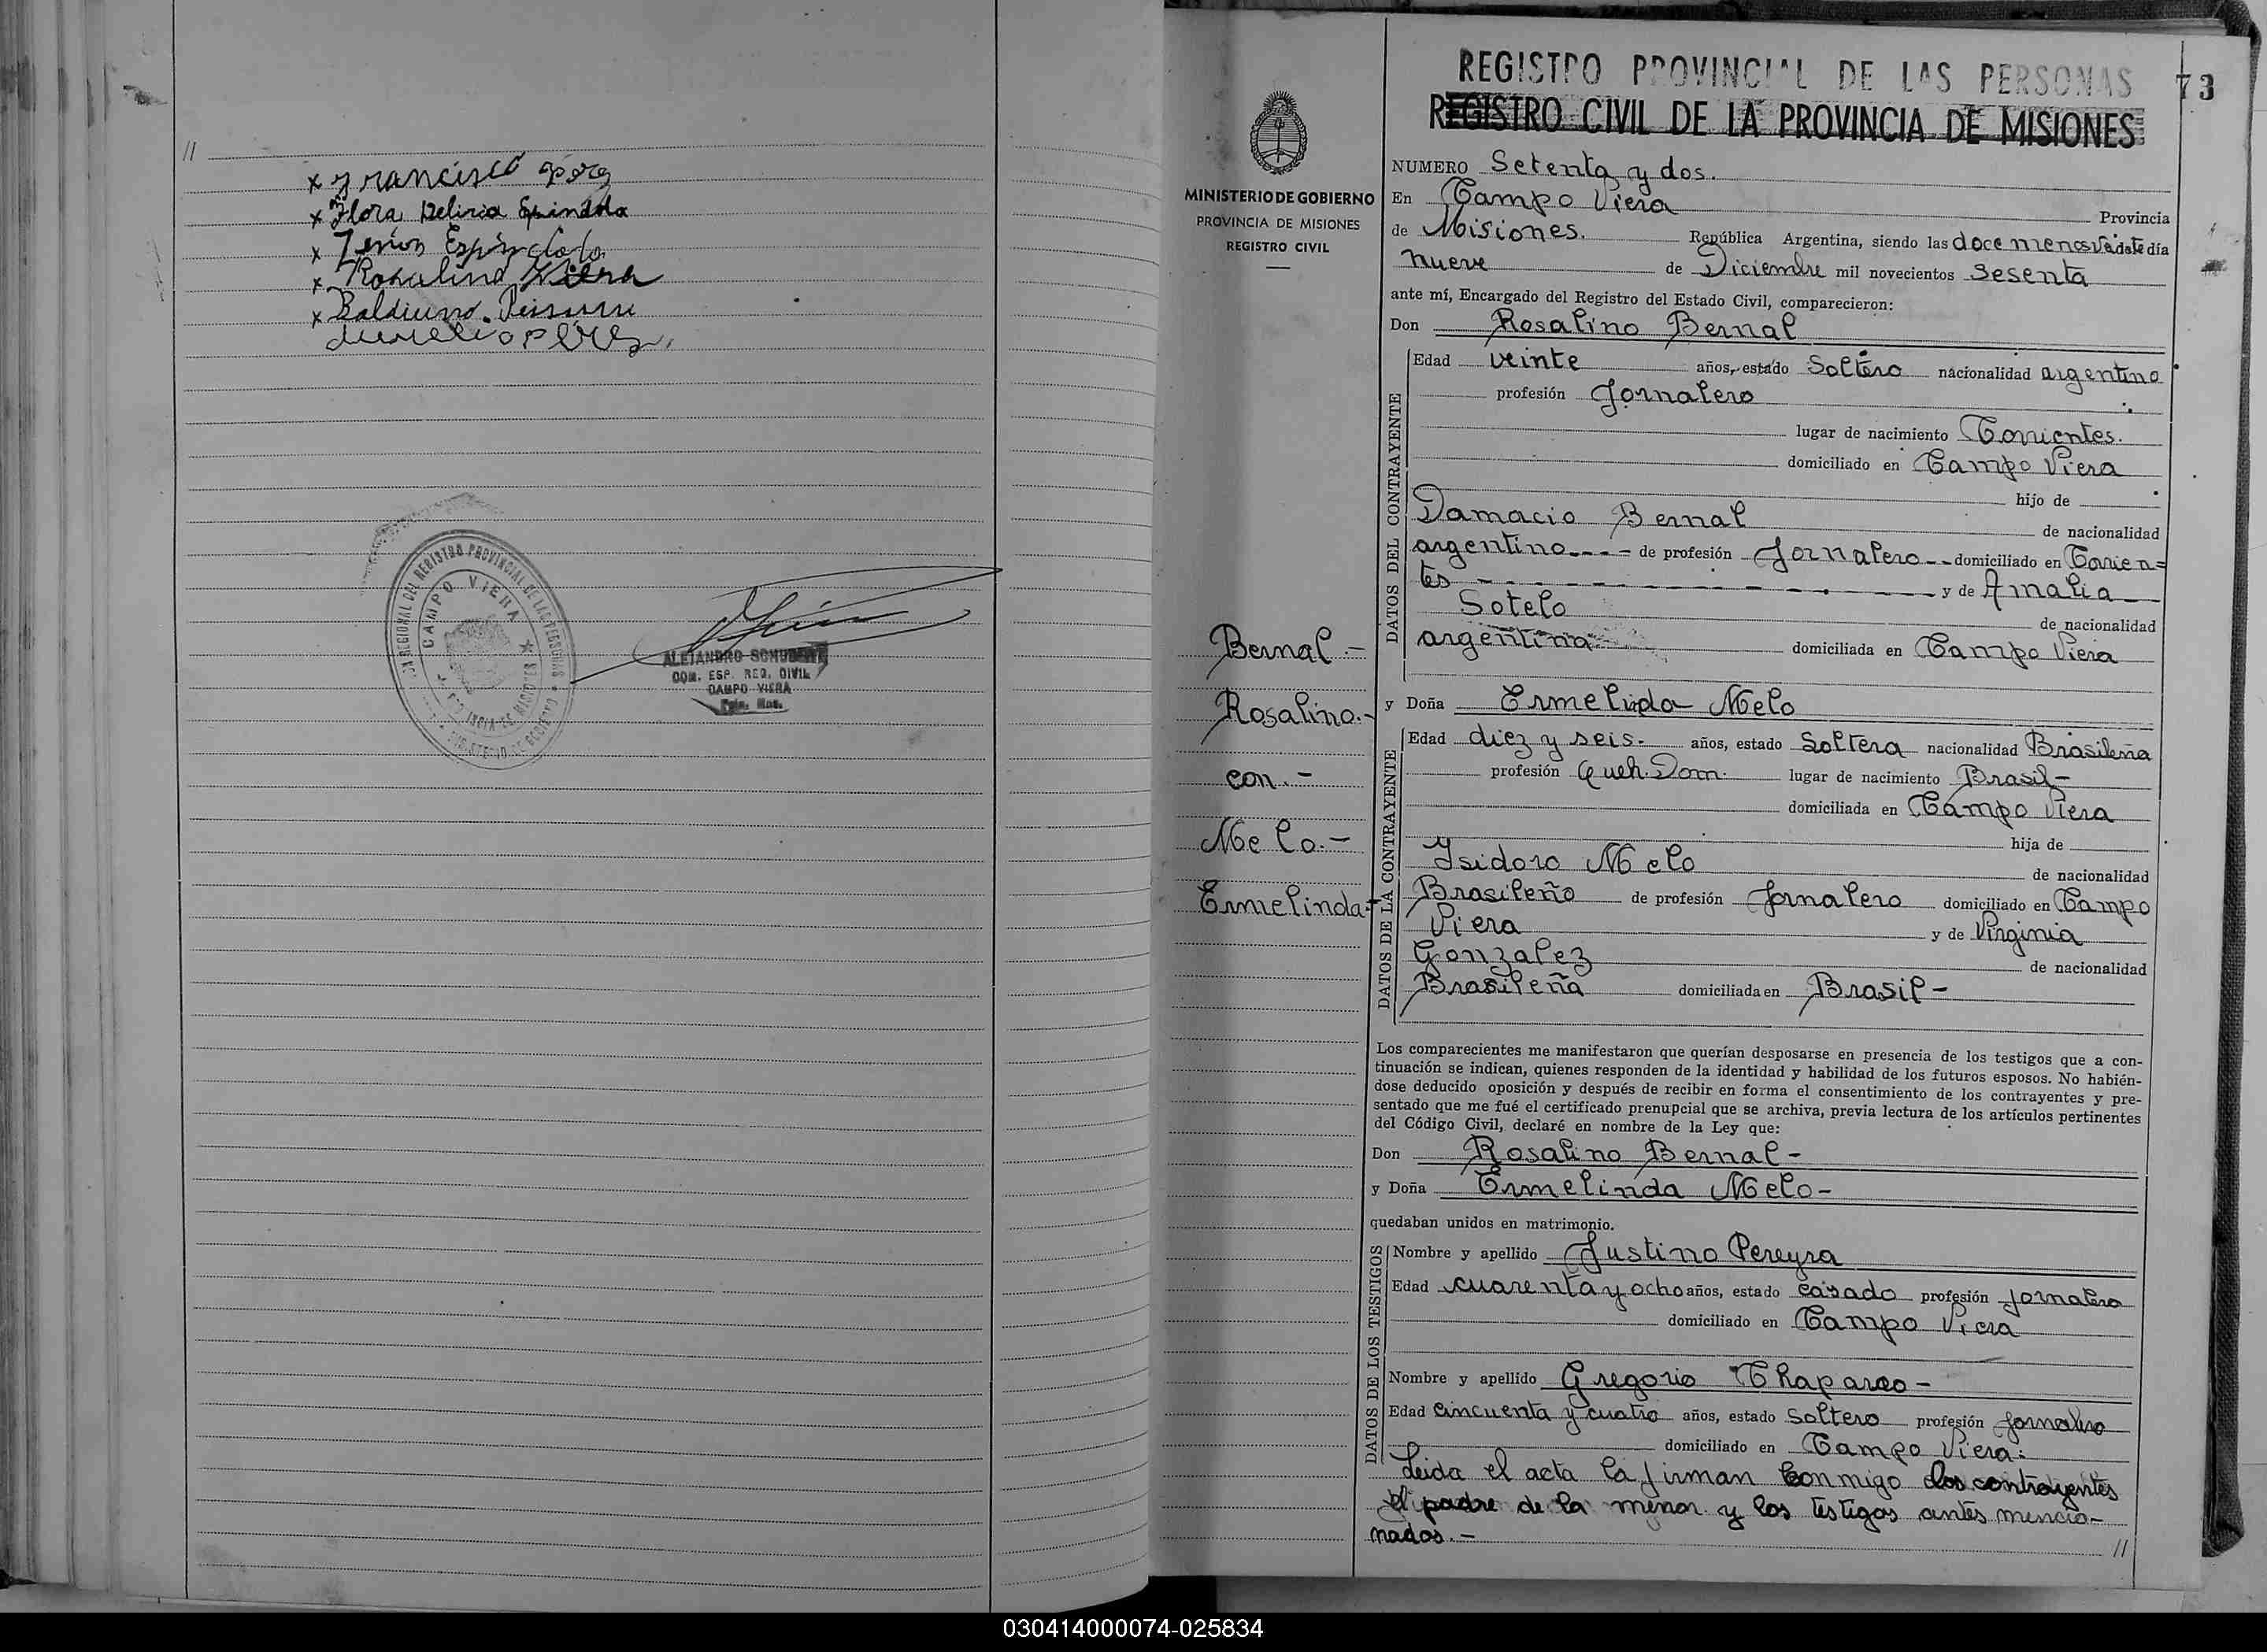 //
x Francisco
x Flora Delicia Espindola
x Espindola
x Rosalino
x Balduino.
ON REGIONAL DEL REGISTRO PROVINCIAL DE LAS PERSONAS
CAMPO VIERA
ALEJANDRO SCHUBERT
COM. ESP. REG. CIVIL
CAMPO VIERA
Pcia. Mns.
REGISTRO PROVINCIAL DE LAS PERSONAS
73
REGISTRO CIVIL DE LA PROVINCIA DE MISIONES
MINISTERIO DE GOBIERNO
PROVINCIA DE MISIONES
REGISTRO CIVIL
Bernal.-
Rosalino.-
con.-
Melo.-
Ermelinda.-
NUMERO Setenta y dos.
En Campo Viera Provincia
de Misiones. República Argentina, siendo las doce menos día
nueve de Diciembre mil novecientos sesenta
ante mí, Encargado del Registro del Estado Civil, comparecieron:
Don Rosalino Bernal
DATOS DEL CONTRAYENTE
Edad veinte años, estado Soltero nacionalidad argentino
profesión Jornalero
lugar de nacimiento Corrientes.
domiciliado en Campo Viera
hijo de
Damacio Bernal de nacionalidad
argentino---- de profesión Jornalero-- domiciliado en Corrien=
tes - - - - - - - - y de Amalia
Sotelo de nacionalidad
argentina domiciliada en Campo Viera
y Doña Ermelinda Melo
DATOS DE LA CONTRAYENTE
Edad diez y seis. años, estado Soltera nacionalidad Brasileña
profesión Queh. Dom. lugar de nacimiento Brasil-
domiciliada en Campo Viera
hija de
Isidoro Melo de nacionalidad
Brasileño de profesión Jornalero domiciliado en Campo
Viera y de Virginia
Gonzalez de nacionalidad
Brasileña domiciliada en Brasil-
Los comparecientes me manifestaron que querían desposarse en presencia de los testigos que a con-
tinuación se indican, quienes responden de la identidad y habilidad de los futuros esposos. No habién-
dose deducido oposición y después de recibir en forma el consentimiento de los contrayentes y pre-
sentado que me fué el certificado prenupcial que se archiva, previa lectura de los artículos pertinentes
del Código Civil, declaré en nombre de la Ley que:
Don Rosalino Bernal-
y Doña Ermelinda Melo-
quedaban unidos en matrimonio.
DATOS DE LOS TESTIGOS
Nombre y apellido Justino Pereyra
Edad cuarenta y ocho años, estado casado profesión jornalero
domiciliado en Campo Viera
Nombre y apellido Gregorio Chaparro-
Edad cincuenta y cuatro años, estado soltero profesión jornalero
domiciliado en Campo Viera:
Leida el acta la firman conmigo los contrayentes
el padre de la menor y los testigos antes mencio-
nados.-
//
030414000074-025834